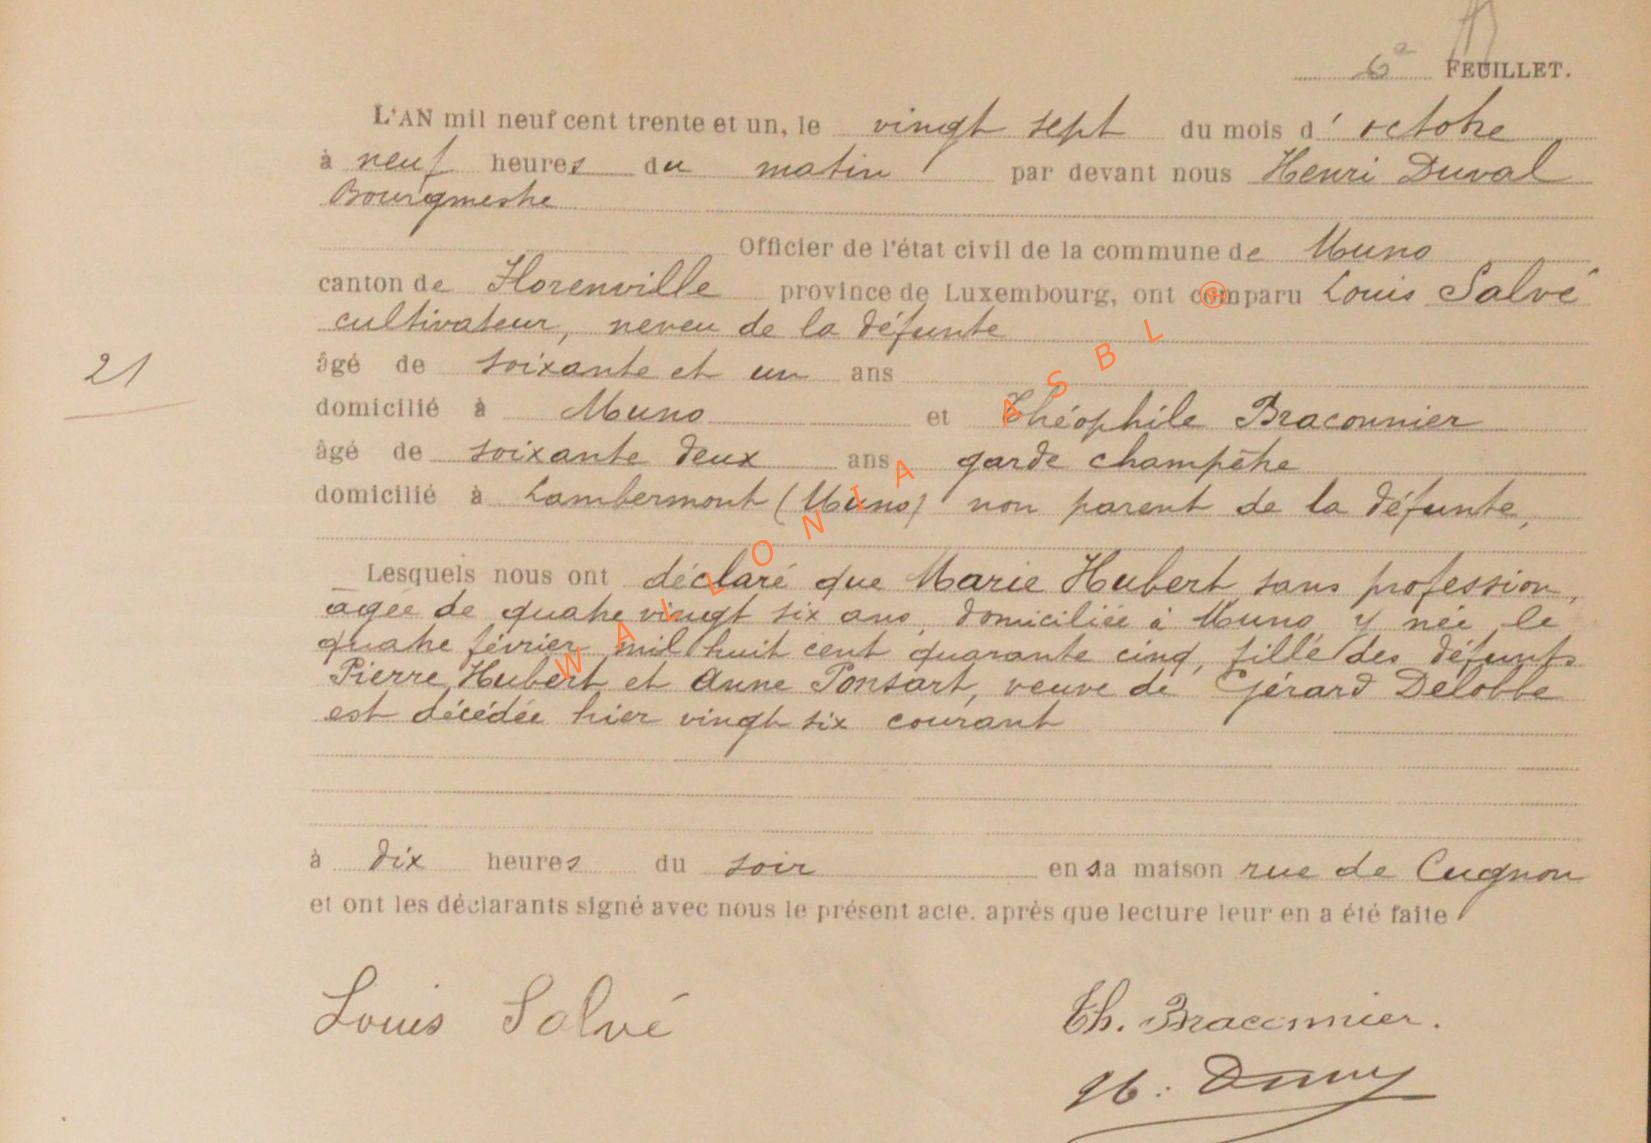 6e FEUILLET.
L'AN mil neuf cent trente et un, le vingt sept du mois d' octobre
à neuf heures du matin par devant nous Henri Duval
Bourgmestre
Officier de l'état civil de la commune de Muno
canton de Florenville province de Luxembourg, ont comparu Louis Salvé
cultivateur, neveu de la défunte
21
âgé de soixante et un ans
domicilié à Muno et Théophile Braconnier
âgé de soixante deux ans garde champêtre
domicilié à Lambermont (Muno) non parent de la défunte,
Lesquels nous ont déclaré que Marie Hubert sans profession,
agée de quatre vingt six ans, domiciliée à Muno y née le
quatre février mil huit cent quarante cinq, fille des défunts
Pierre Hubert et Anne Ponsart, veuve de Gérard Delobbe
est décédée hier vingt six courant
à dix heures du soir en sa maison rue de Cugnon
et ont les déclarants signé avec nous le présent acte. après que lecture leur en a été faite
Louis Salvé
Th. Braconnier.
H. Duval
WALLONIA ASBL ®